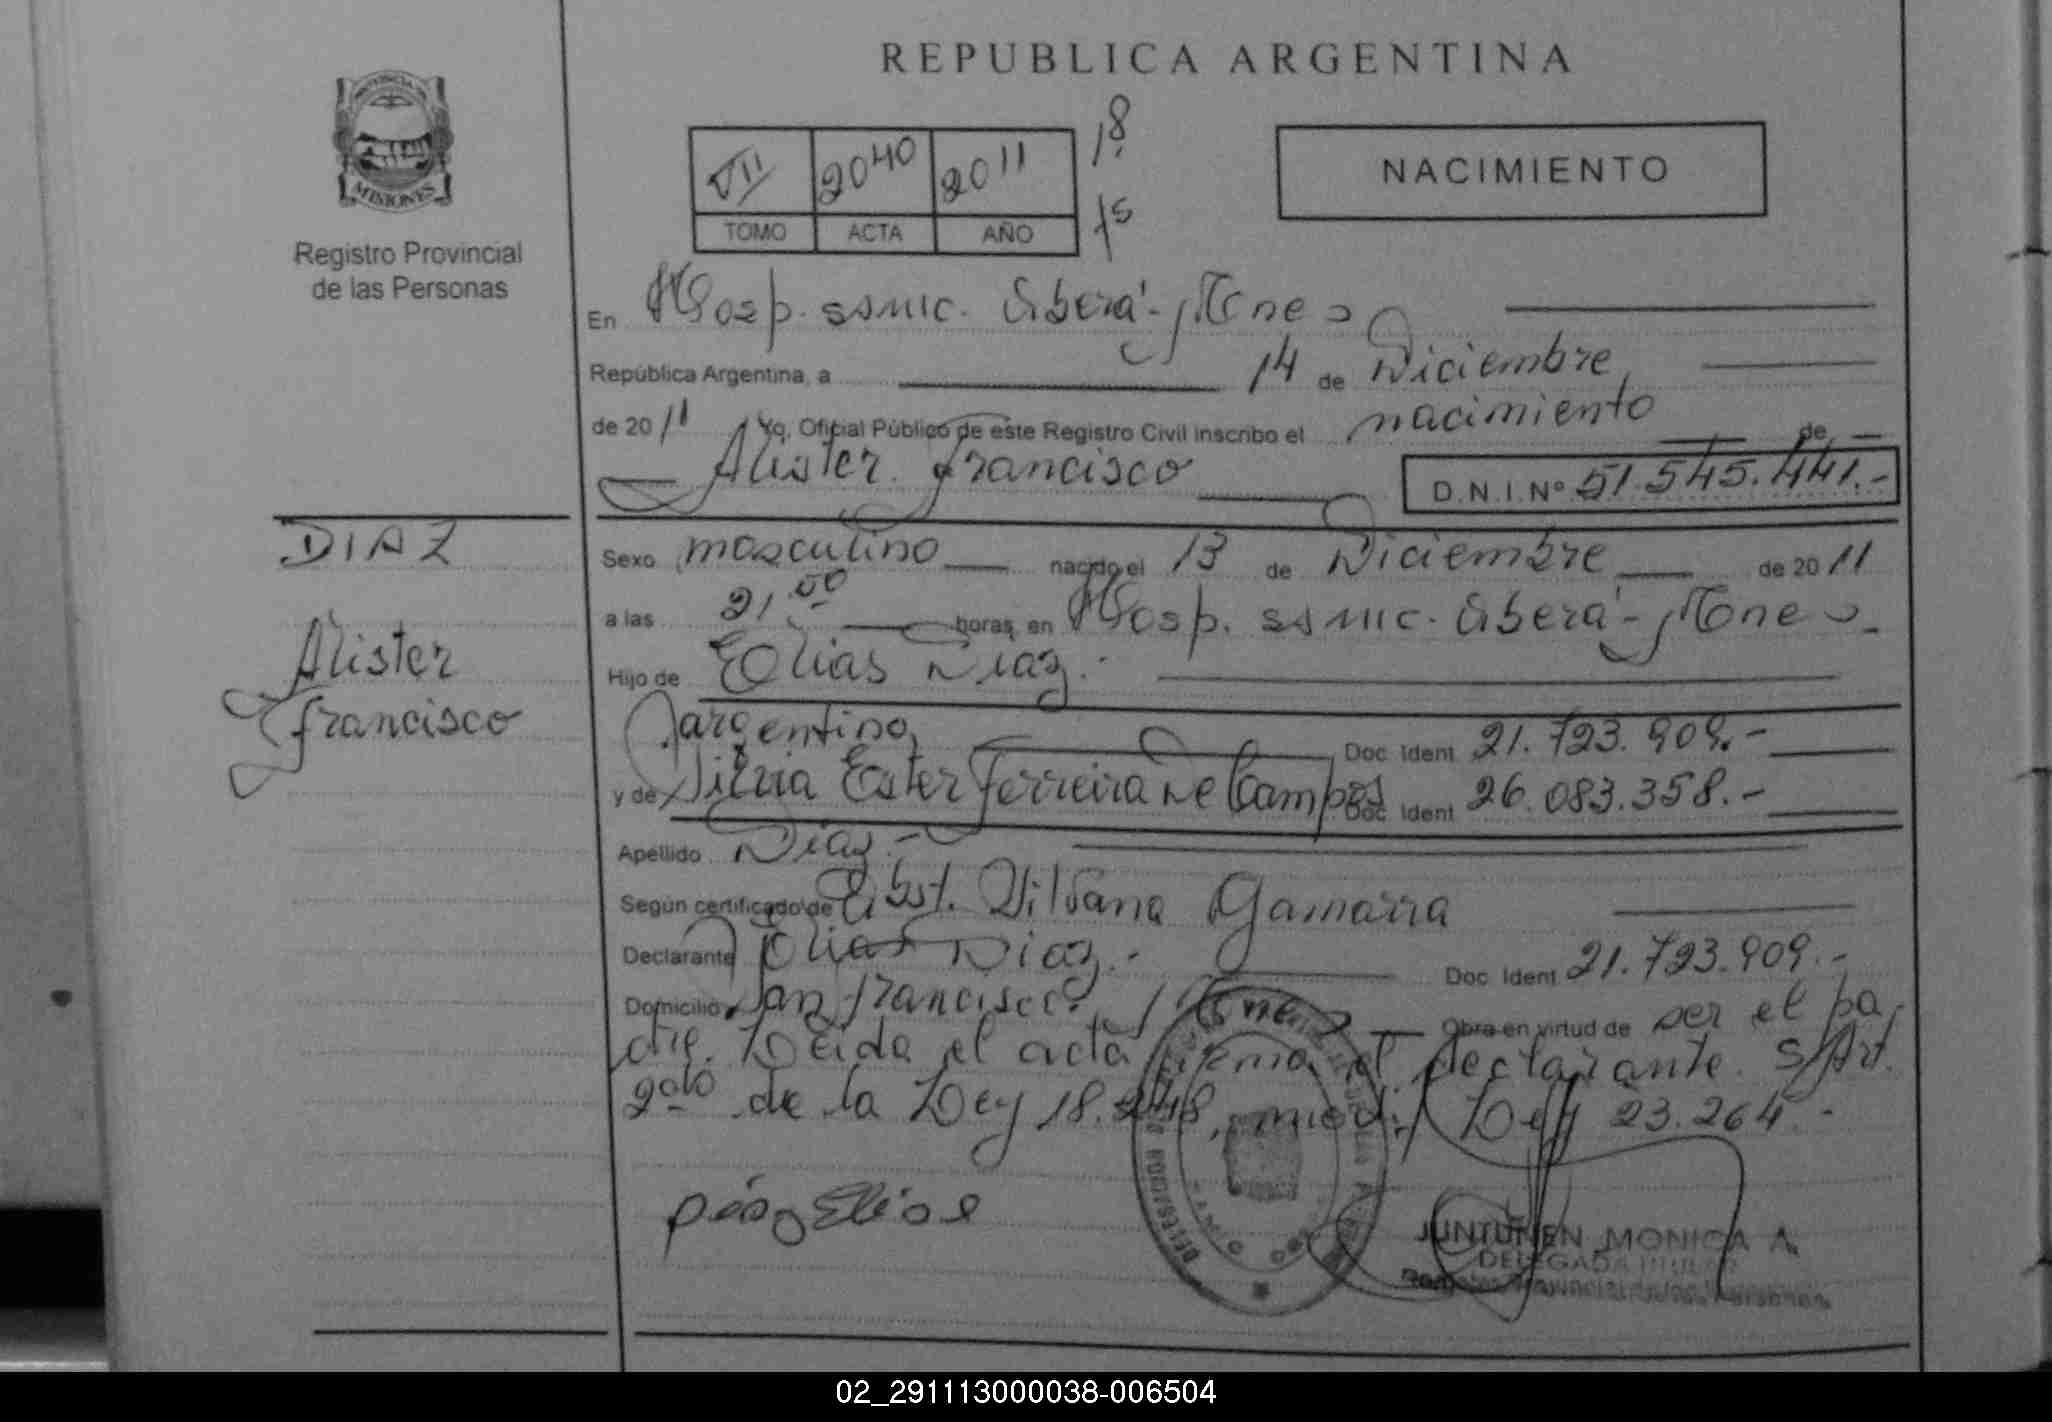 REPUBLICA ARGENTINA
PROVINCIA DE
MISIONES
Registro Provincial
de las Personas
VII 2040 2011
TOMO ACTA AÑO
18
15
NACIMIENTO
En Hosp. SSMIC. Oberá - Mnes
República Argentina, a 14 de Diciembre
de 2011 Yo, Oficial Público de este Registro Civil inscribo el nacimiento de
Alister Francisco D.N.I. Nº 51.545.441.-
DIAZ
Alister
Francisco
Sexo masculino nacido el 13 de Diciembre de 2011
a las 21,00 horas, en Hosp. SSMIC. Oberá - Mnes.
Hijo de Elias Diaz.
argentino, Doc Ident 21.723.909.-
y de Silvia Ester Ferreira De Campos Doc Ident 26.083.358.-
Apellido Diaz.-
Según certificado de Obst. Silvana Gamarra
Declarante Elias Diaz.- Doc Ident 21.723.909.-
Domicilio San Francisco. Mnes Obra en virtud de ser el pa
dre. Leida el acta firma el declarante. S/Art.
2do de la Ley 18.248, modi/ Ley 23.264.-
Diaz Elias
JUNTUNEN MONICA A.
DELEGADA TITULAR
02_291113000038-006504